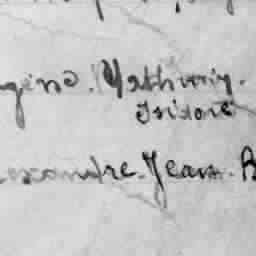 gène. Mathurin.
Isidore
lexandre. Jean. B